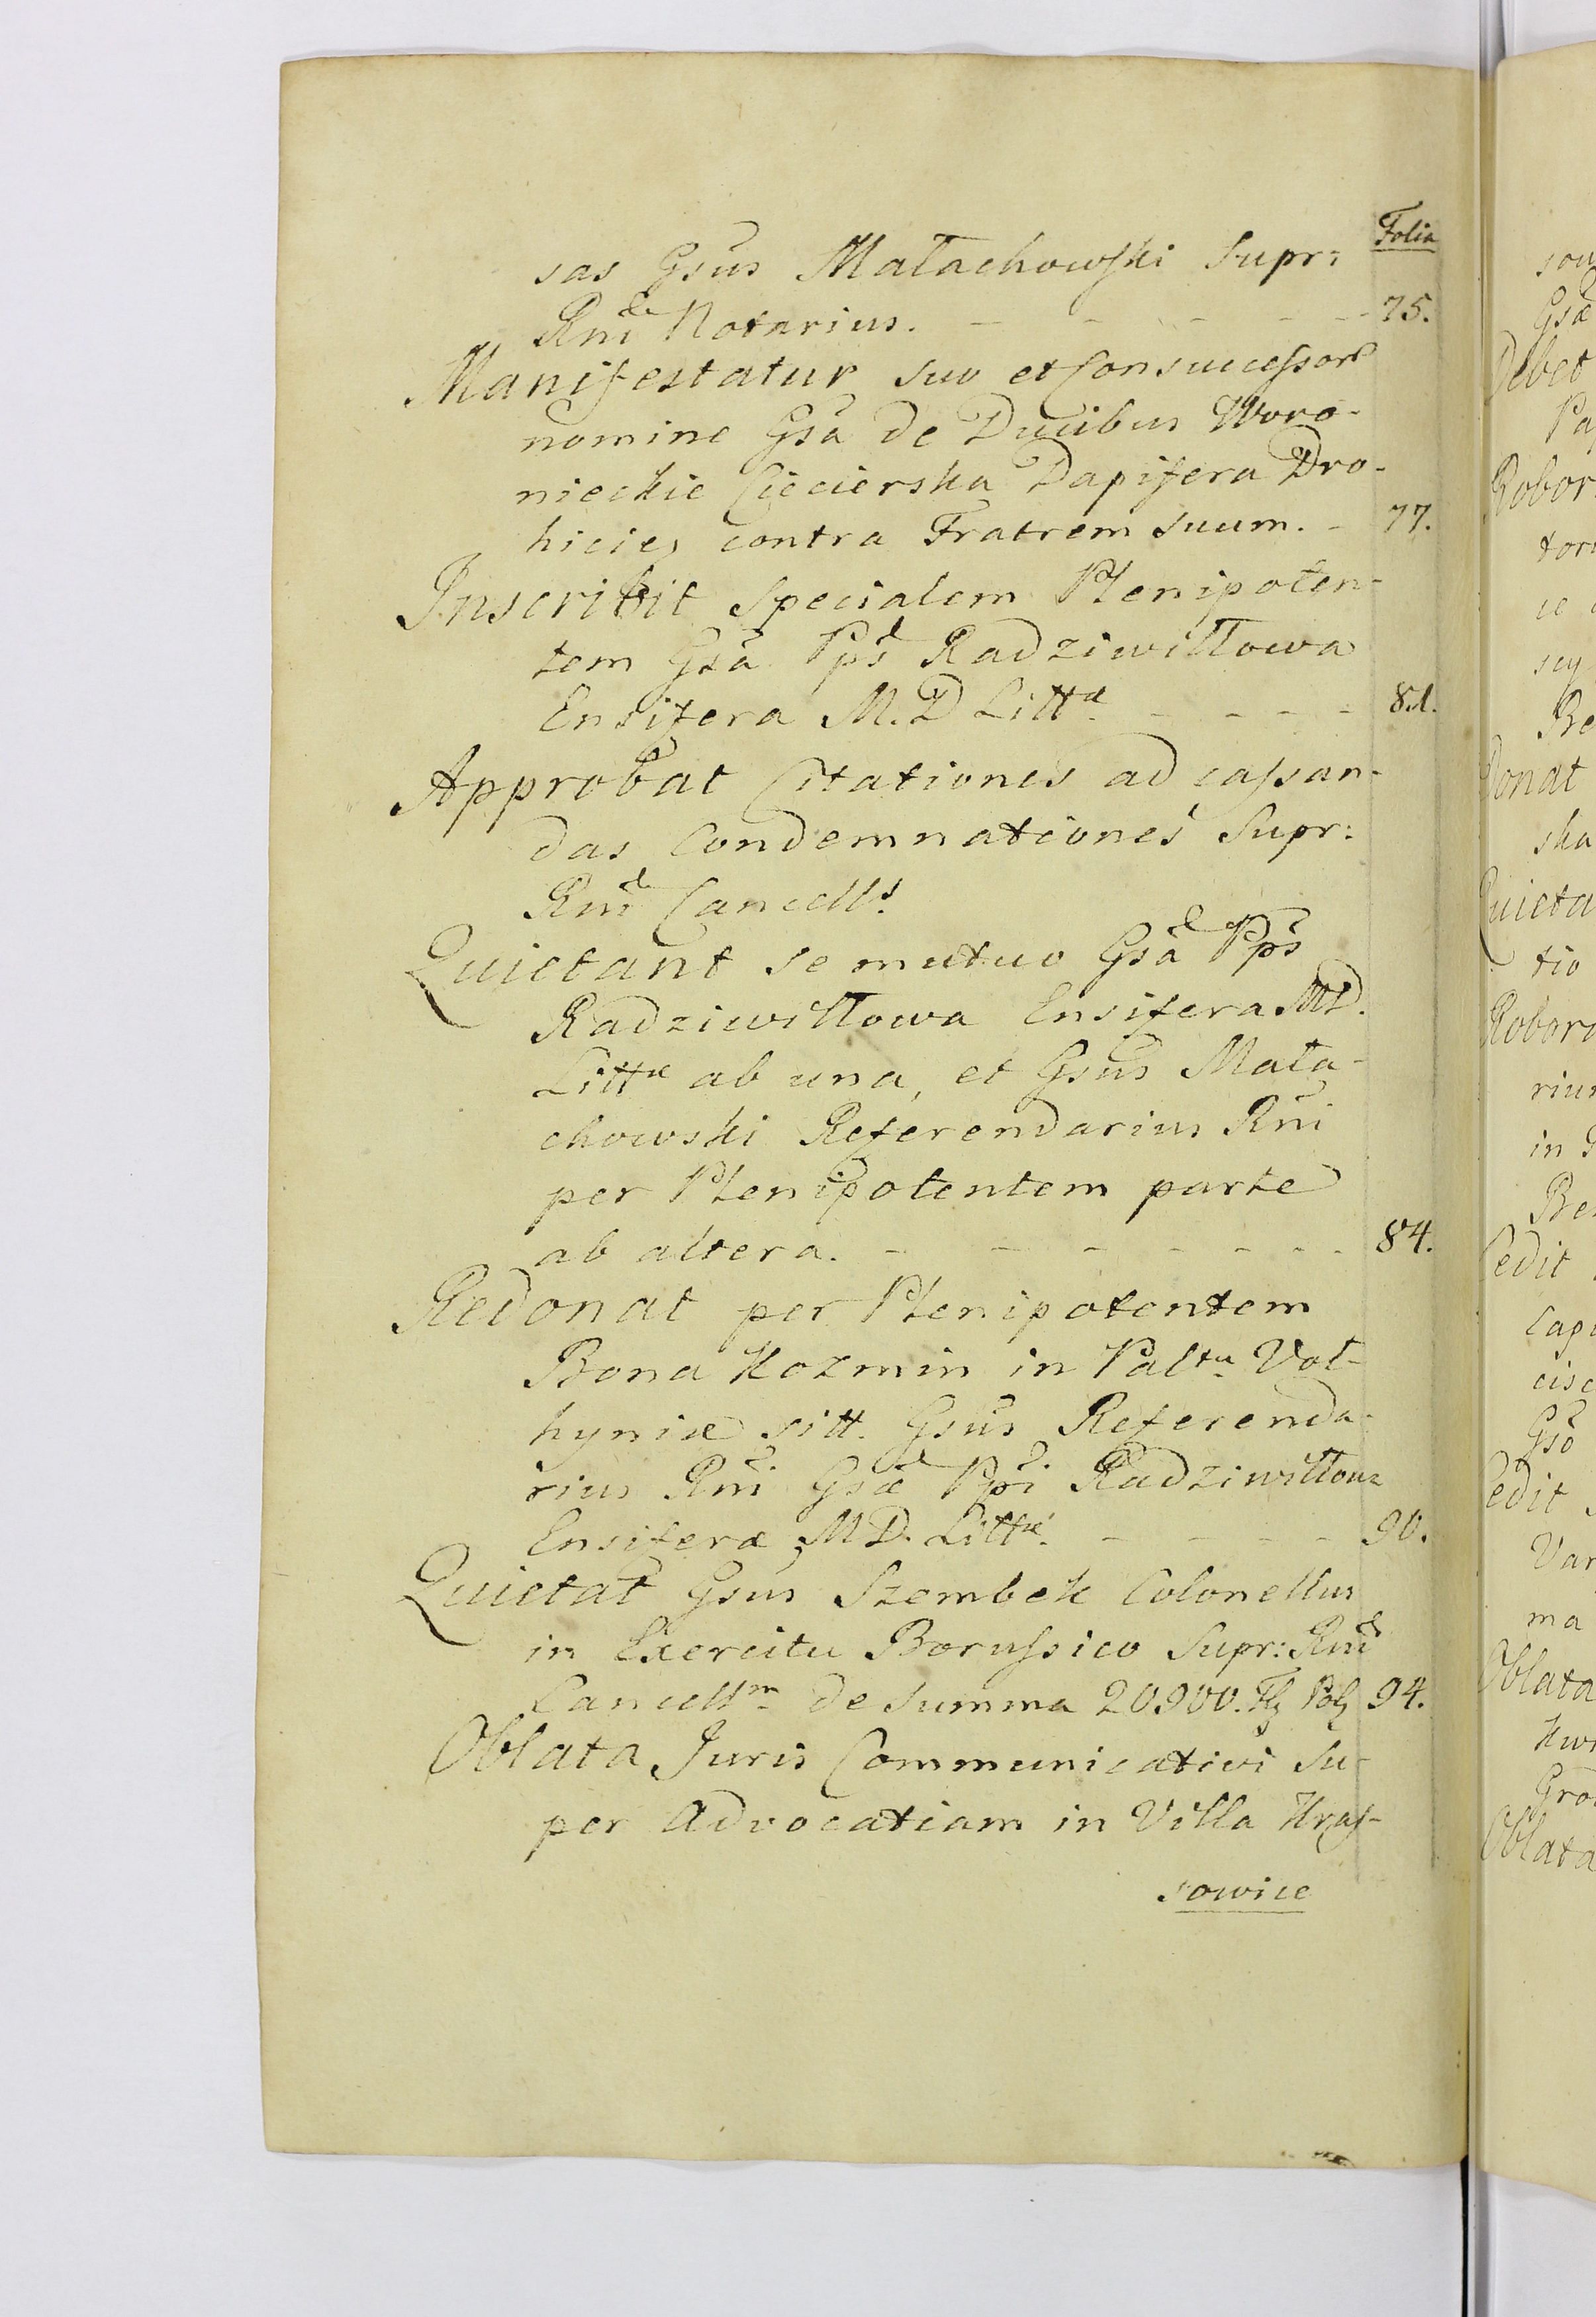 Folia
sas Gsus Małachowski Supr:
Rni Notarius. - - - - - 75.
Manifestatur suo et Consuccessor
nomine Gsa de Ducibus Woro-
nieckie Ciecierska Dapifera Dro-
hicien contra Fratrem suum. - 77.
Inscribit Specialem Plenipoten-
tem Gsa Pps Radziwiłłowa
Ensifera M. D Littæ - - - - 81.
Approbat Citationes ad cassan-
das Condemnationes Supr:
Rni Cancells
Quietant se mutuo Gsa Pps
Radziwiłłowa Ensifera MD.
Littæ ab una, et Gsus Mała-
chowski Referendarius Rni
per Plenipotentem parte
ab altera. - - - - - - 84.
Redonat per Plenipotentem
Bona Kozmin in Paltu Vol-
hyniæ sitt. Gsus Referenda-
rius Rni Gsæ Ppi Radziwiłłowa
Ensiferæ MD. Littæ. - - - - 90.
Quietat Gsus Szembek Colonellus
in Exercitu Borussico Supr: Rni
Cancellm de Summa 20900. Fl Pol 94.
Oblata Juris Communicativi Su-
per Advocatiam in Villa Kras-
sowice
sow
Gsæ
Debet
Pa
Robor
tor
ce
scy
Re
Donat
ska
Quieta
tio
Robora
riu
in
Be
Cedit
Cap
cisc
Gso
Cedit
Var
ma
Oblata
Kwi
Gro
Oblata